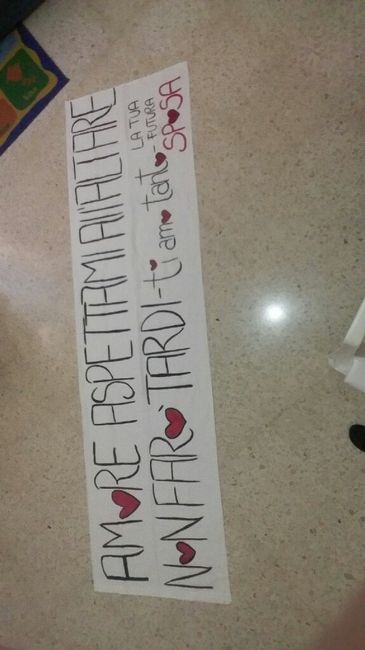 AMORE ASPETTAMI All'ALTARE
NON FARÒ TARDI - ti amo tanto -
LA TUA
FUTURA
SPOSA